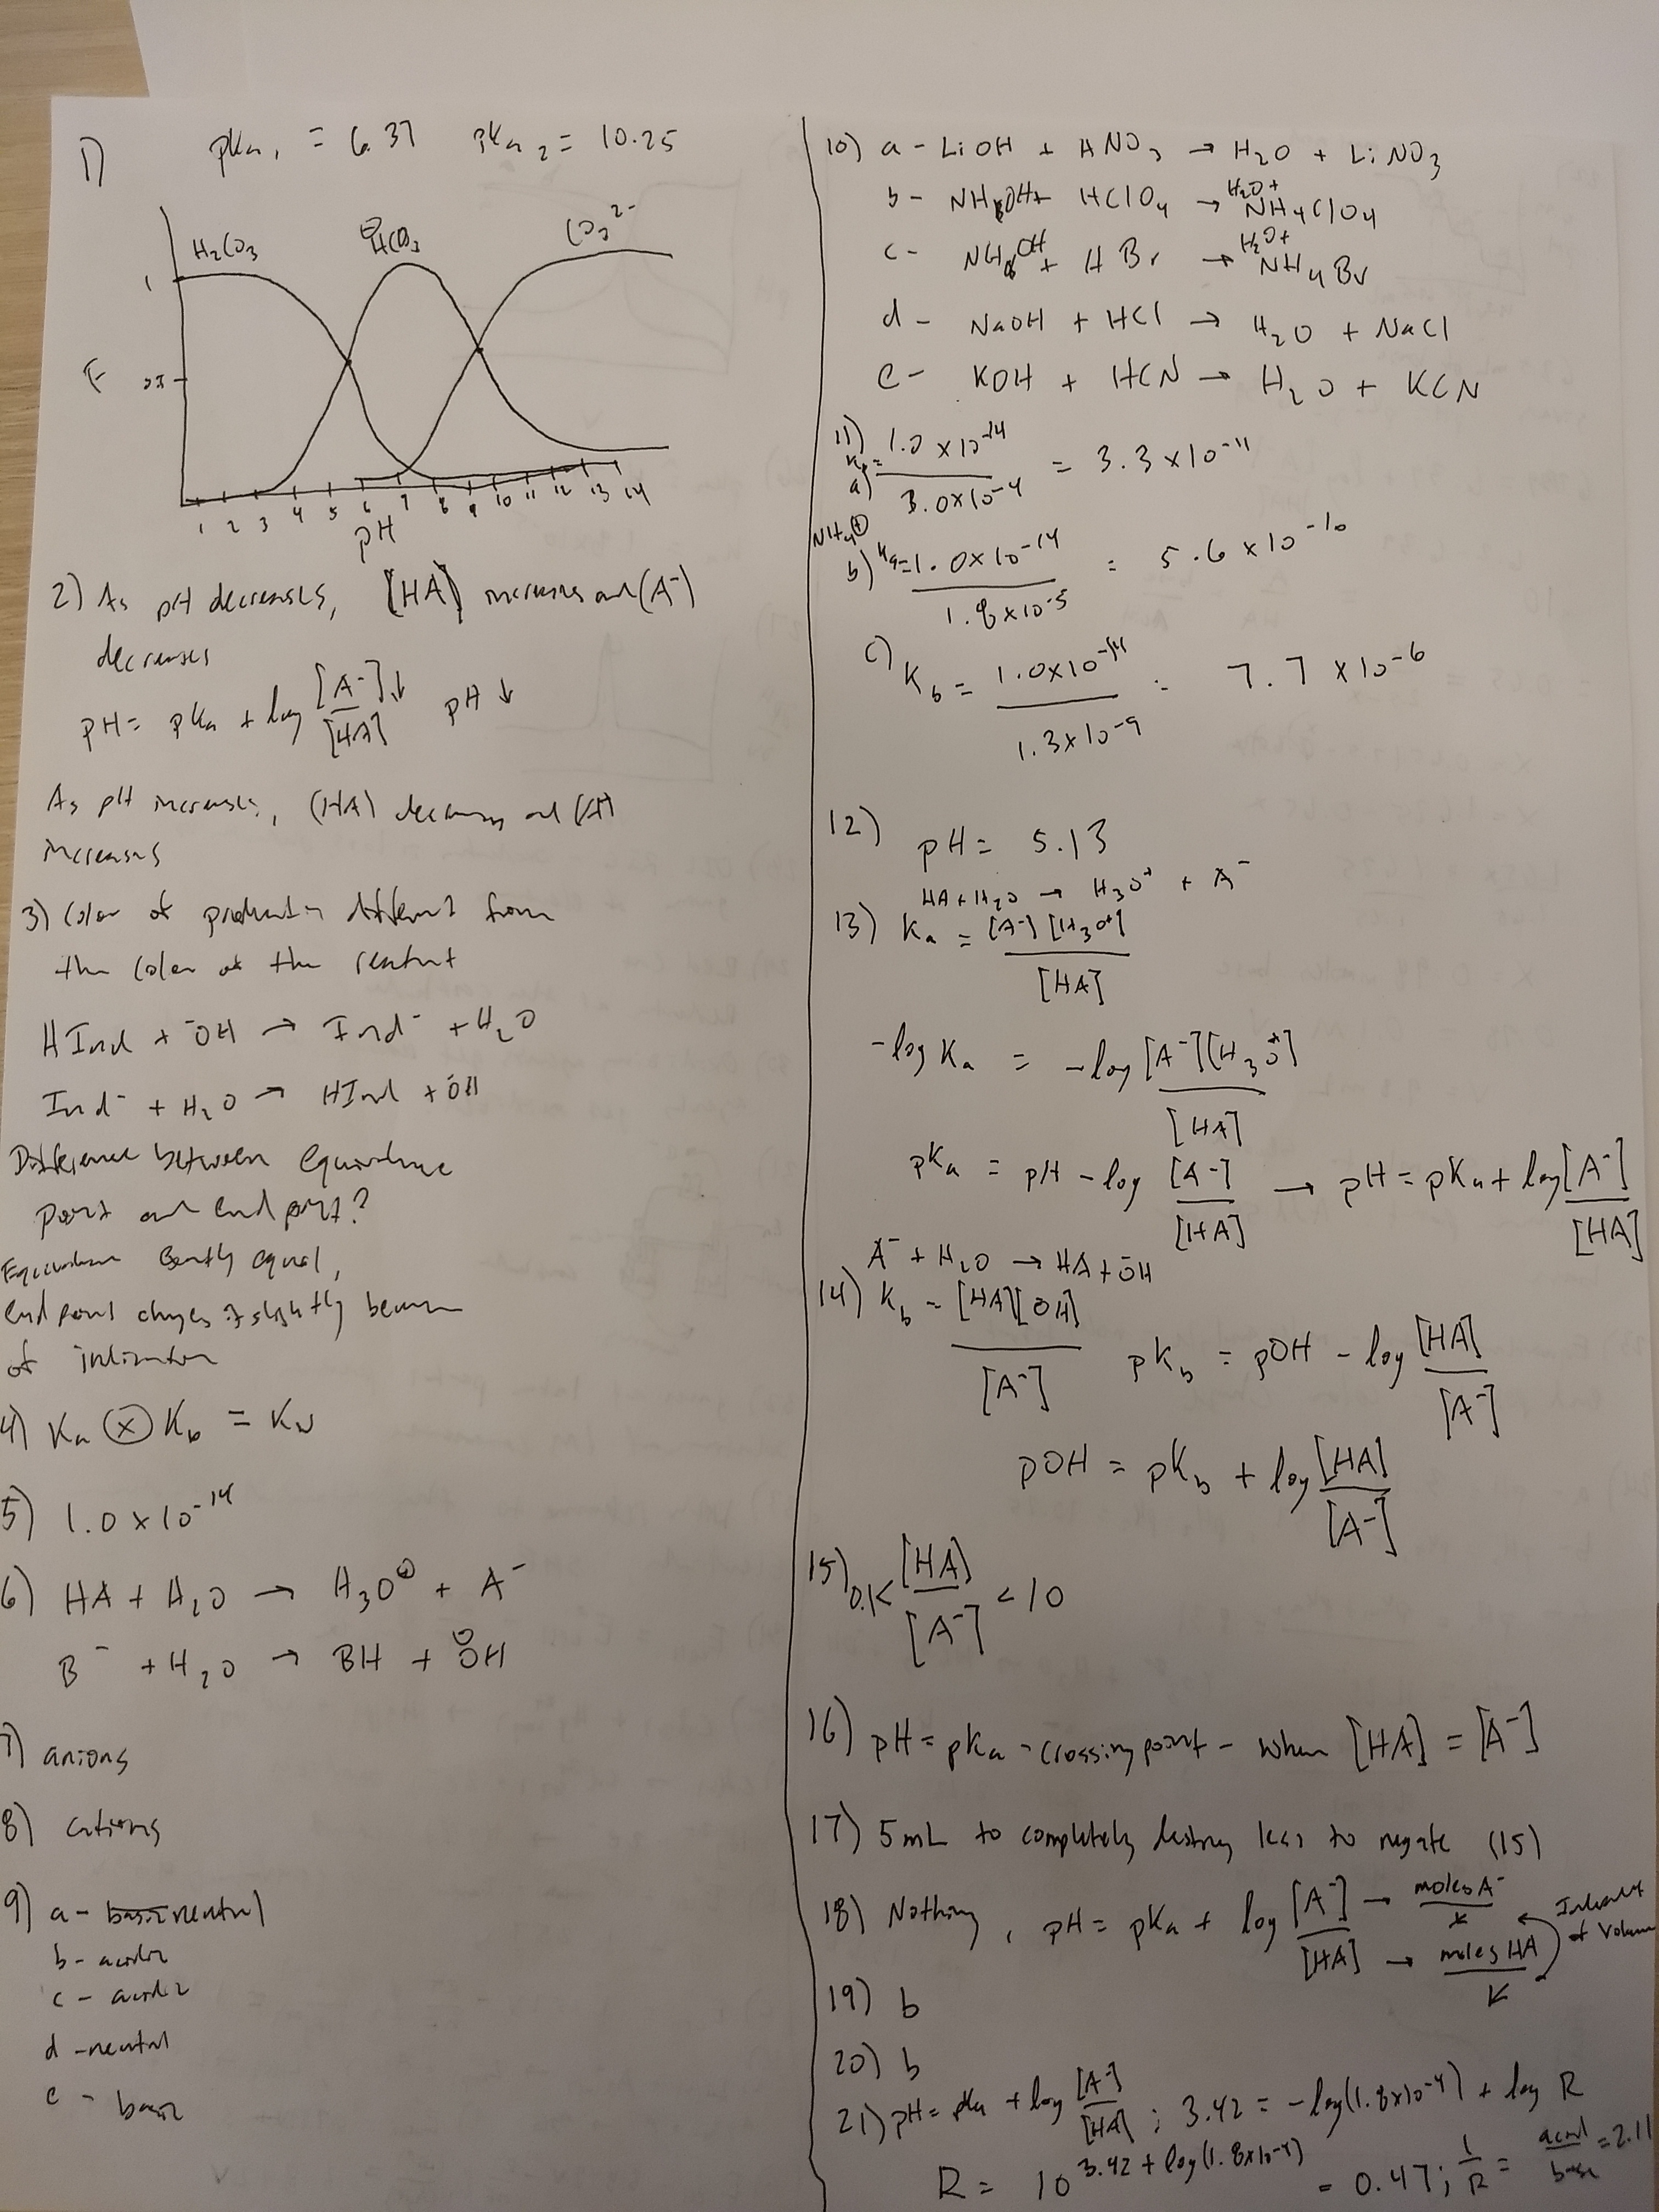 1) pKa₁ = 6.37 pKa₂ = 10.25
H₂CO₃ HCO₃⊖ CO₃²⁻
1
F
1 2 3 4 5 6 7 8 9 10 11 12 13 14
pH
2) As pH decreases, [HA] increases and (A⁻)
decreases
pH = pKa + log [A⁻]↓ / [HA] pH ↓
As pH increases, (HA) decreases and (A⁻)
increases
3) Color of product is different from
the color of the reactant
HInd + ⁻OH → Ind⁻ + H₂O
Ind⁻ + H₂O → HInd + ⁻OH
Difference between equivalence
point and end point?
Equivalence equal,
end point changes slightly because
of indicator
4) Ka ⓧ Kb = Kw
5) 1.0 x 10⁻¹⁴
6) HA + H₂O → H₃O⊕ + A⁻
B⁻ + H₂O → BH + ⊖OH
7) anions
8) cations
9) a - basic neutral
b - acidic
c - acidic
d - neutral
e - basic
10) a - LiOH + HNO₃ → H₂O + LiNO₃
b - NH₄OH + HClO₄ → H₂O + NH₄ClO₄
c - NH₄OH + HBr → H₂O + NH₄Br
d - NaOH + HCl → H₂O + NaCl
e - KOH + HCN → H₂O + KCN
11)
a) 1.0 x 10⁻¹⁴ / 3.0x10⁻⁴ = 3.3 x 10⁻¹¹
NH₄⊕
b) Ka = 1.0x10⁻¹⁴ / 1.8x10⁻⁵ = 5.6 x 10⁻¹⁰
c) Kb = 1.0x10⁻¹⁴ / 1.3x10⁻⁹ = 7.7 x 10⁻⁶
12) pH = 5.13
HA + H₂O → H₃O⁺ + A⁻
13) Ka = [A⁻][H₃O⁺] / [HA]
-log Ka = -log [A⁻][H₃O⁺] / [HA]
pKa = pH - log [A⁻] / [HA] → pH = pKa + log [A⁻] / [HA]
A⁻ + H₂O → HA + ⁻OH
14) Kb = [HA][⁻OH] / [A⁻] pKb = pOH - log [HA] / [A⁻]
pOH = pKb + log [HA] / [A⁻]
15) 0.1 < [HA] / [A⁻] < 10
16) pH = pKa - crossing point - when [HA] = [A⁻]
17) 5 mL to completely destroy less to negate (15)
18) Nothing, pH = pKa + log [A⁻] / [HA] → moles A⁻ / V → moles HA / V
of Volume
19) b
20) b
21) pH = pKa + log [A⁻] / [HA] ; 3.42 = -log(1.8x10⁻⁴) + log R
R = 10^(3.42 + log(1.8x10⁻⁴)) = 0.47 ; 1/R = acid / base = 2.11